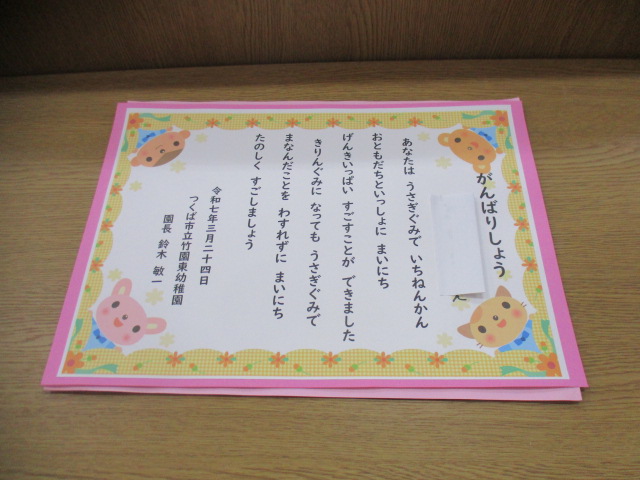 がんばりしょう
え
あなたは うさぎぐみで いちねんかん
おともだちといっしょに まいにち
げんきいっぱい すごすことが できました
きりんぐみに なっても うさぎぐみで
まなんだことを わすれずに まいにち
たのしく すごしましょう
令和七年三月二十四日
つくば市立竹園東幼稚園
園長 鈴木 敏一